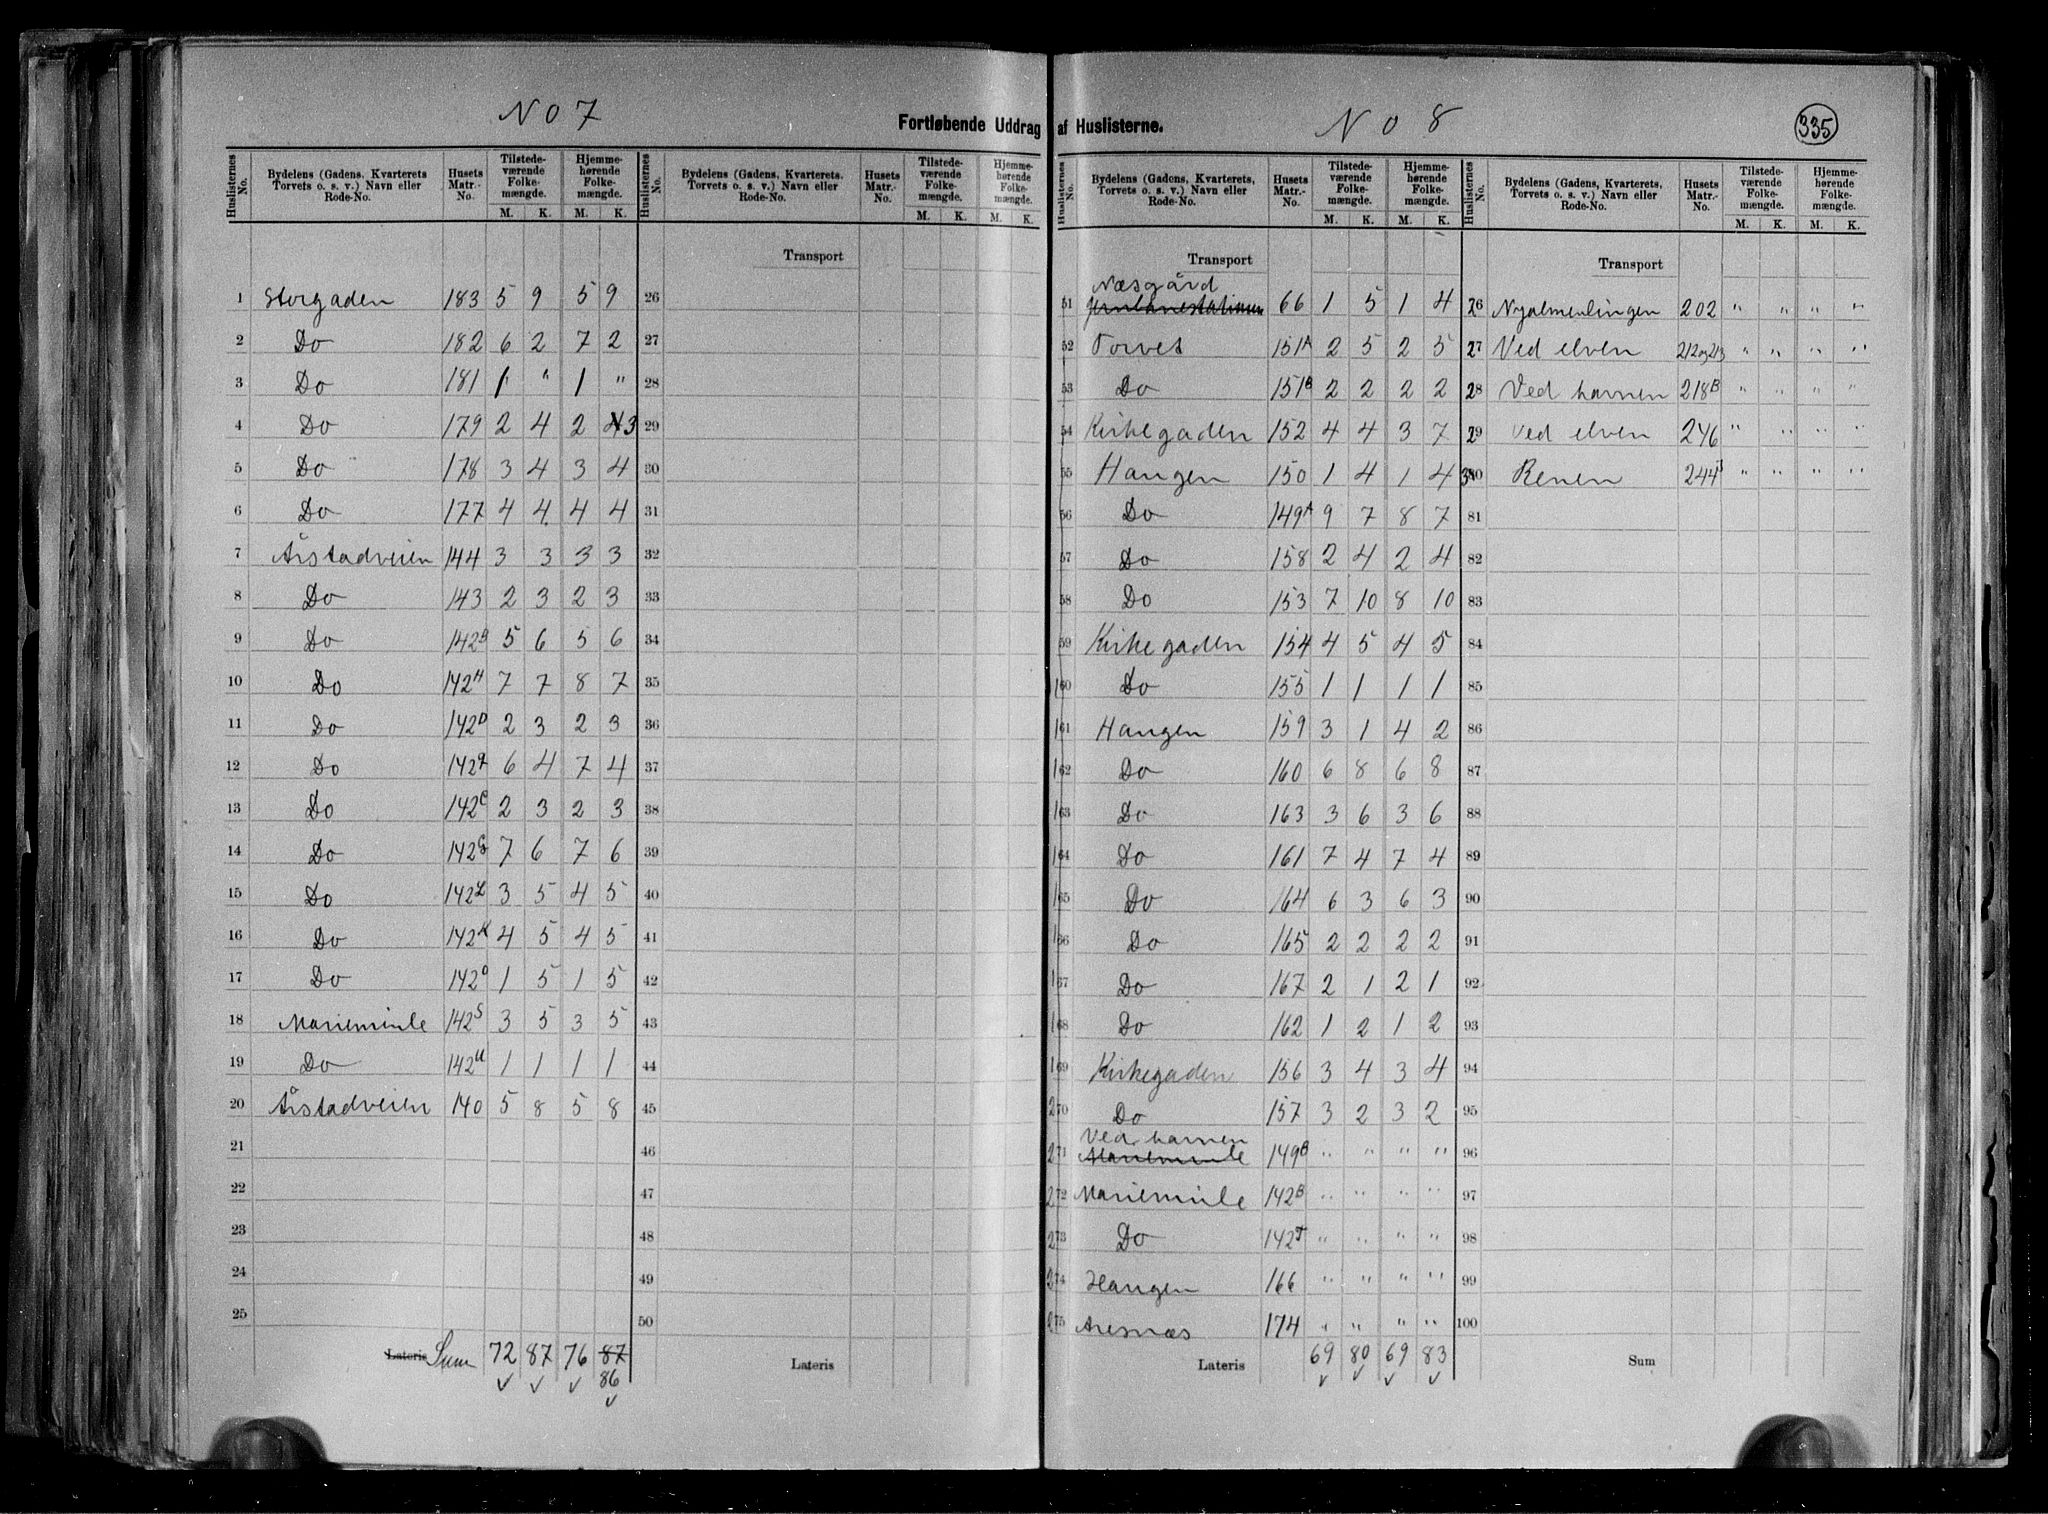 No 7
Fortløbende Uddrag af Huslisterne.
No 8
335
Huslisternes No.
Bydelens (Gadens, Kvarterets, Torvets o. s. v.) Navn eller Rode-No.
Husets Matr.-No.
Tilstedeværende Folkemængde. M. K.
Hjemmehørende Folkemængde. M. K.
Huslisternes No.
Bydelens (Gadens, Kvarterets, Torvets o. s. v.) Navn eller Rode-No.
Husets Matr.-No.
Tilstedeværende Folkemængde. M. K.
Hjemmehørende Folkemængde. M. K.
1 Storgaden 183 5 9 5 9
2 Do 182 6 2 7 2
3 Do 181 1 " 1 "
4 Do 179 2 4 2 4 3
5 Do 178 3 4 3 4
6 Do 177 4 4 4 4
7 Årstadveien 144 3 3 3 3
8 Do 143 2 3 2 3
9 Do 142B 5 6 5 6
10 Do 142H 7 7 8 7
11 Do 142D 2 3 2 3
12 Do 142 6 4 7 4
13 Do 142C 2 3 2 3
14 Do 142G 7 6 7 6
15 Do 142L 3 5 4 5
16 Do 142K 4 5 4 5
17 Do 142O 1 5 1 5
18 Marieminde 142S 3 5 3 5
19 Do 142U 1 1 1 1
20 Årstadveien 140 5 8 5 8
21
22
23
24
25
Lateris Sum 72 87 76 87
86
Transport
26
27
28
29
30
31
32
33
34
35
36
37
38
39
40
41
42
43
44
45
46
47
48
49
50
Lateris
Huslisternes No.
Bydelens (Gadens, Kvarterets, Torvets o. s. v.) Navn eller Rode-No.
Husets Matr.-No.
Tilstedeværende Folkemængde. M. K.
Hjemmehørende Folkemængde. M. K.
Huslisternes No.
Bydelens (Gadens, Kvarterets, Torvets o. s. v.) Navn eller Rode-No.
Husets Matr.-No.
Tilstedeværende Folkemængde. M. K.
Hjemmehørende Folkemængde. M. K.
Transport
Næsgård
51 Jernbanestationen 66 1 5 1 4
52 Torvet 151A 2 5 2 5
53 Do 151B 2 2 2 2
54 Kirkegaden 152 4 4 3 7
55 Haugen 150 1 4 1 4
56 Do 149A 9 7 8 7
57 Do 158 2 4 2 4
58 Do 153 7 10 8 10
59 Kirkegaden 154 4 5 4 5
60 Do 155 1 1 1 1
61 Haugen 159 3 1 4 2
62 Do 160 6 8 6 8
63 Do 163 3 6 3 6
64 Do 161 7 4 7 4
65 Do 164 6 3 6 3
66 Do 165 2 2 2 2
67 Do 167 2 1 2 1
68 Do 162 1 2 1 2
69 Kirkegaden 156 3 4 3 4
70 Do 157 3 2 3 2
Ved havnen
71 Marieminde 149B " " " "
72 Marieminde 142B " " " "
73 Do 142T " " " "
74 Haugen 166 " " " "
75 Aresnæs 174 " " " "
Lateris 69 80 69 83
Transport
26 Nyalmenningen 202 " " " "
27 Ved elven 212 og 213 " " " "
28 Ved havnen 218B " " " "
29 Ved elven 246 " " " "
30 Renen 244 " " " "
81
82
83
84
85
86
87
88
89
90
91
92
93
94
95
96
97
98
99
100
Sum